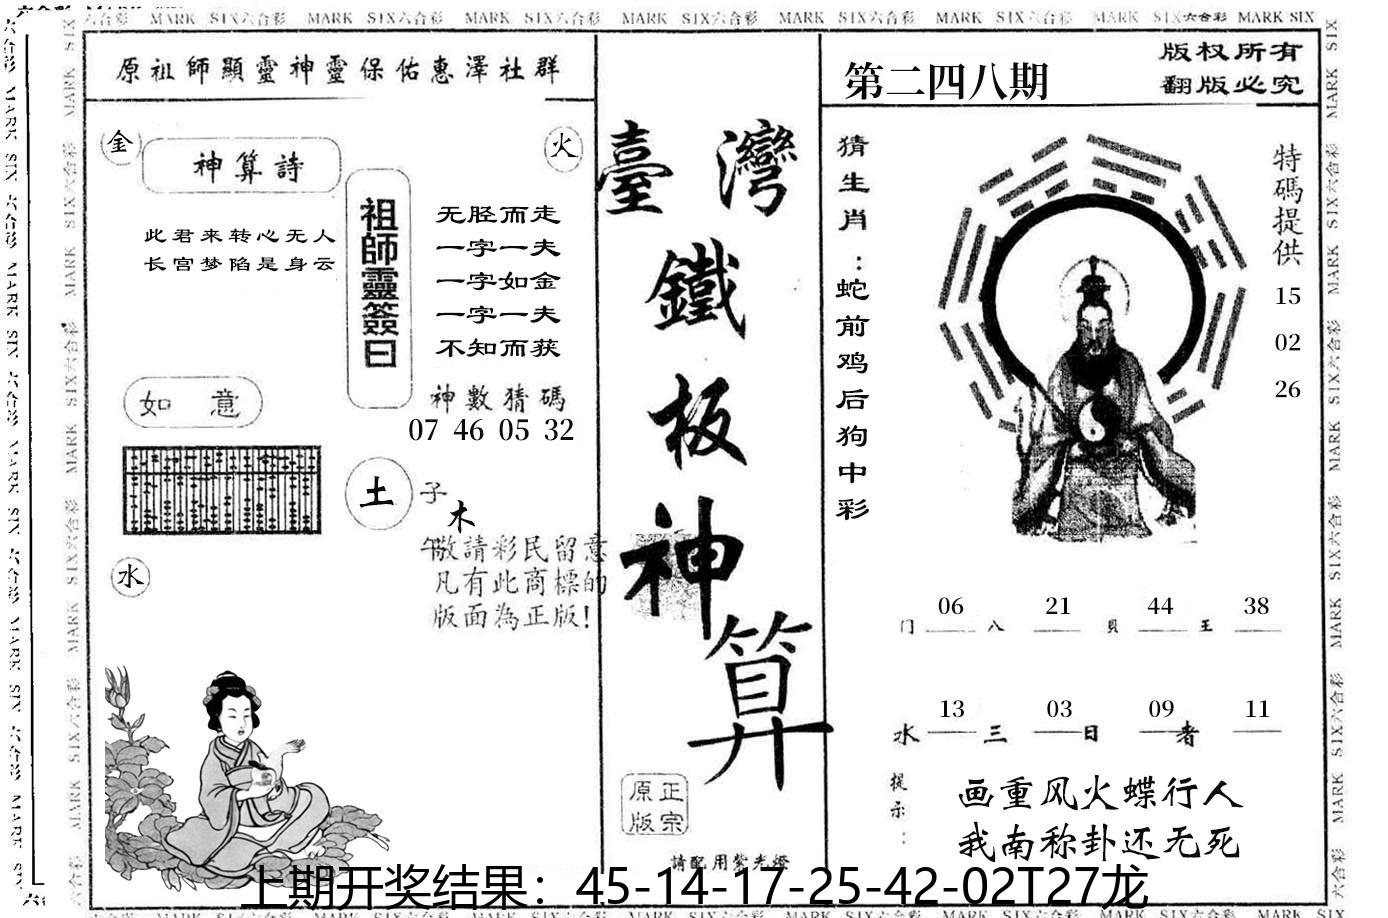 MARK SIX六合彩 MARK SIX六合彩 MARK SIX六合彩 MARK SIX六合彩 MARK SIX六合彩 MARK SIX六合彩 MARK SIX六合彩 MARK SIX
原祖師顯靈神靈保佑惠澤社群
金
神算詩
火
此君来转心无人
长宫梦陷是身云
祖師靈簽曰
无胫而走
一字一夫
一字如金
一字一夫
不知而获
神數猜碼
07 46 05 32
如意
土
子
木
午
水
敬請彩民留意
凡有此商標的
版面為正版!
臺灣
鐵
板
神
算
正宗
原版
請配用紫光燈
第二四八期
版权所有
翻版必究
猜生肖:蛇前鸡后狗中彩
特碼提供
15
02
26
06 21 44 38
门 八 貝 王
13 03 09 11
水 三 日 者
提示:
画重风火蝶行人
我南称卦还无死
上期开奖结果：45-14-17-25-42-02T27龙